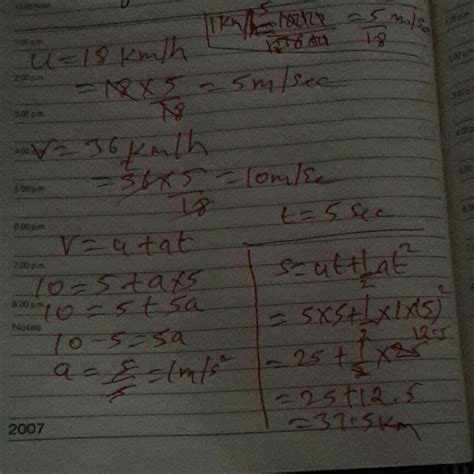 1 km/h = 5/18 m/sec
u = 18 km/h
= 18 × 5/18 = 5 m/sec
v = 36 km/h
= 36 × 5/18 = 10 m/sec
t = 5 sec
v = u + at
10 = 5 + a × 5
10 = 5 + 5a
10 - 5 = 5a
a = 5/5 = 1 m/s²
s = ut + 1/2 at²
= 5 × 5 + 1/2 × 1 × (5)²
= 25 + 1/2 × 25 12.5
= 25 + 12.5
= 37.5 km
2.00 p.m.
3.00 p.m.
4.00 p.m.
5.00 p.m.
6.00 p.m.
7.00 p.m.
8.00 p.m.
Notes
2007